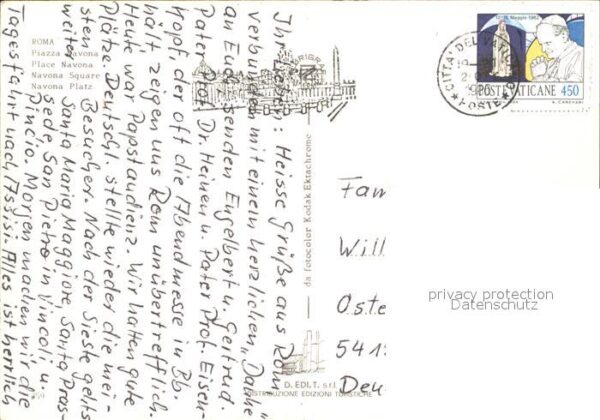 ROMA
Piazza Navona
Place Navona
Navona Square
Navona Platz
Ihr Lieben: Heisse Grüße aus Rom
verbunden mit einem herzlichen „Danke"
an Euch senden Engelbert u. Gertrud.
Pater Prof. Dr. Heinen u. Pater Prof. Eisen-
kopf, der oft die Abendmesse in Bb.
hält zeigen uns Rom unübertrefflich.
Heute war Papstaudienz. Wir hatten gute
Plätze. Deutschl. stellte wieder die mei-
sten Besucher. Nach der Sieste gehts
weiter Santa Maria Maggiore, Santa Pras-
sede, San Pietro in Vincoli u.
Pincio. Morgen machen wir die
Tagesfahrt nach Assisi. Alles ist herrlich
da fotocolor Kodak Ektachrome
D. EDI.T. s.r.l.
DISTRIBUZIONE EDIZIONI TURISTICHE
12-15 Maggio 1982
POSTE VATICANE 450
CITTA' DEL VATICANO
POSTE
Fam
Will
Oste
541
Deu
privacy protection
Datenschutz